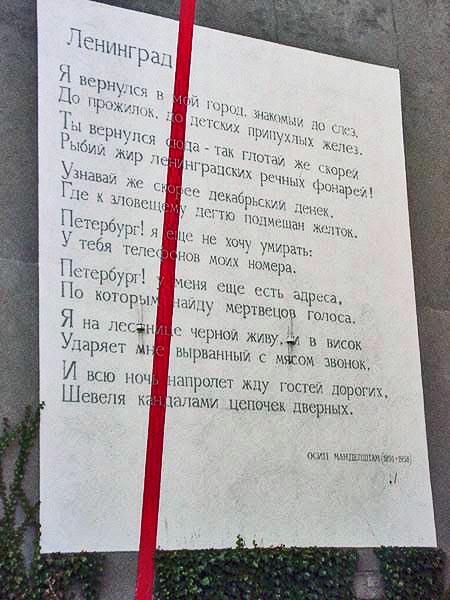 Ленинград
Я вернулся в мой город, знакомый до слез,
До прожилок, до детских припухлых желез.
Ты вернулся сюда - так глотай же скорей
Рыбий жир ленинградских речных фонарей!
Узнавай же скорее декабрьский денек,
Где к зловещему дегтю подмешан желток.
Петербург! я еще не хочу умирать:
У тебя телефонов моих номера.
Петербург! у меня еще есть адреса,
По которым найду мертвецов голоса.
Я на лестнице черной живу, и в висок
Ударяет мне вырванный с мясом звонок,
И всю ночь напролет жду гостей дорогих,
Шевеля кандалами цепочек дверных.
ОСИП МАНДЕЛШТАМ (1891-1938)